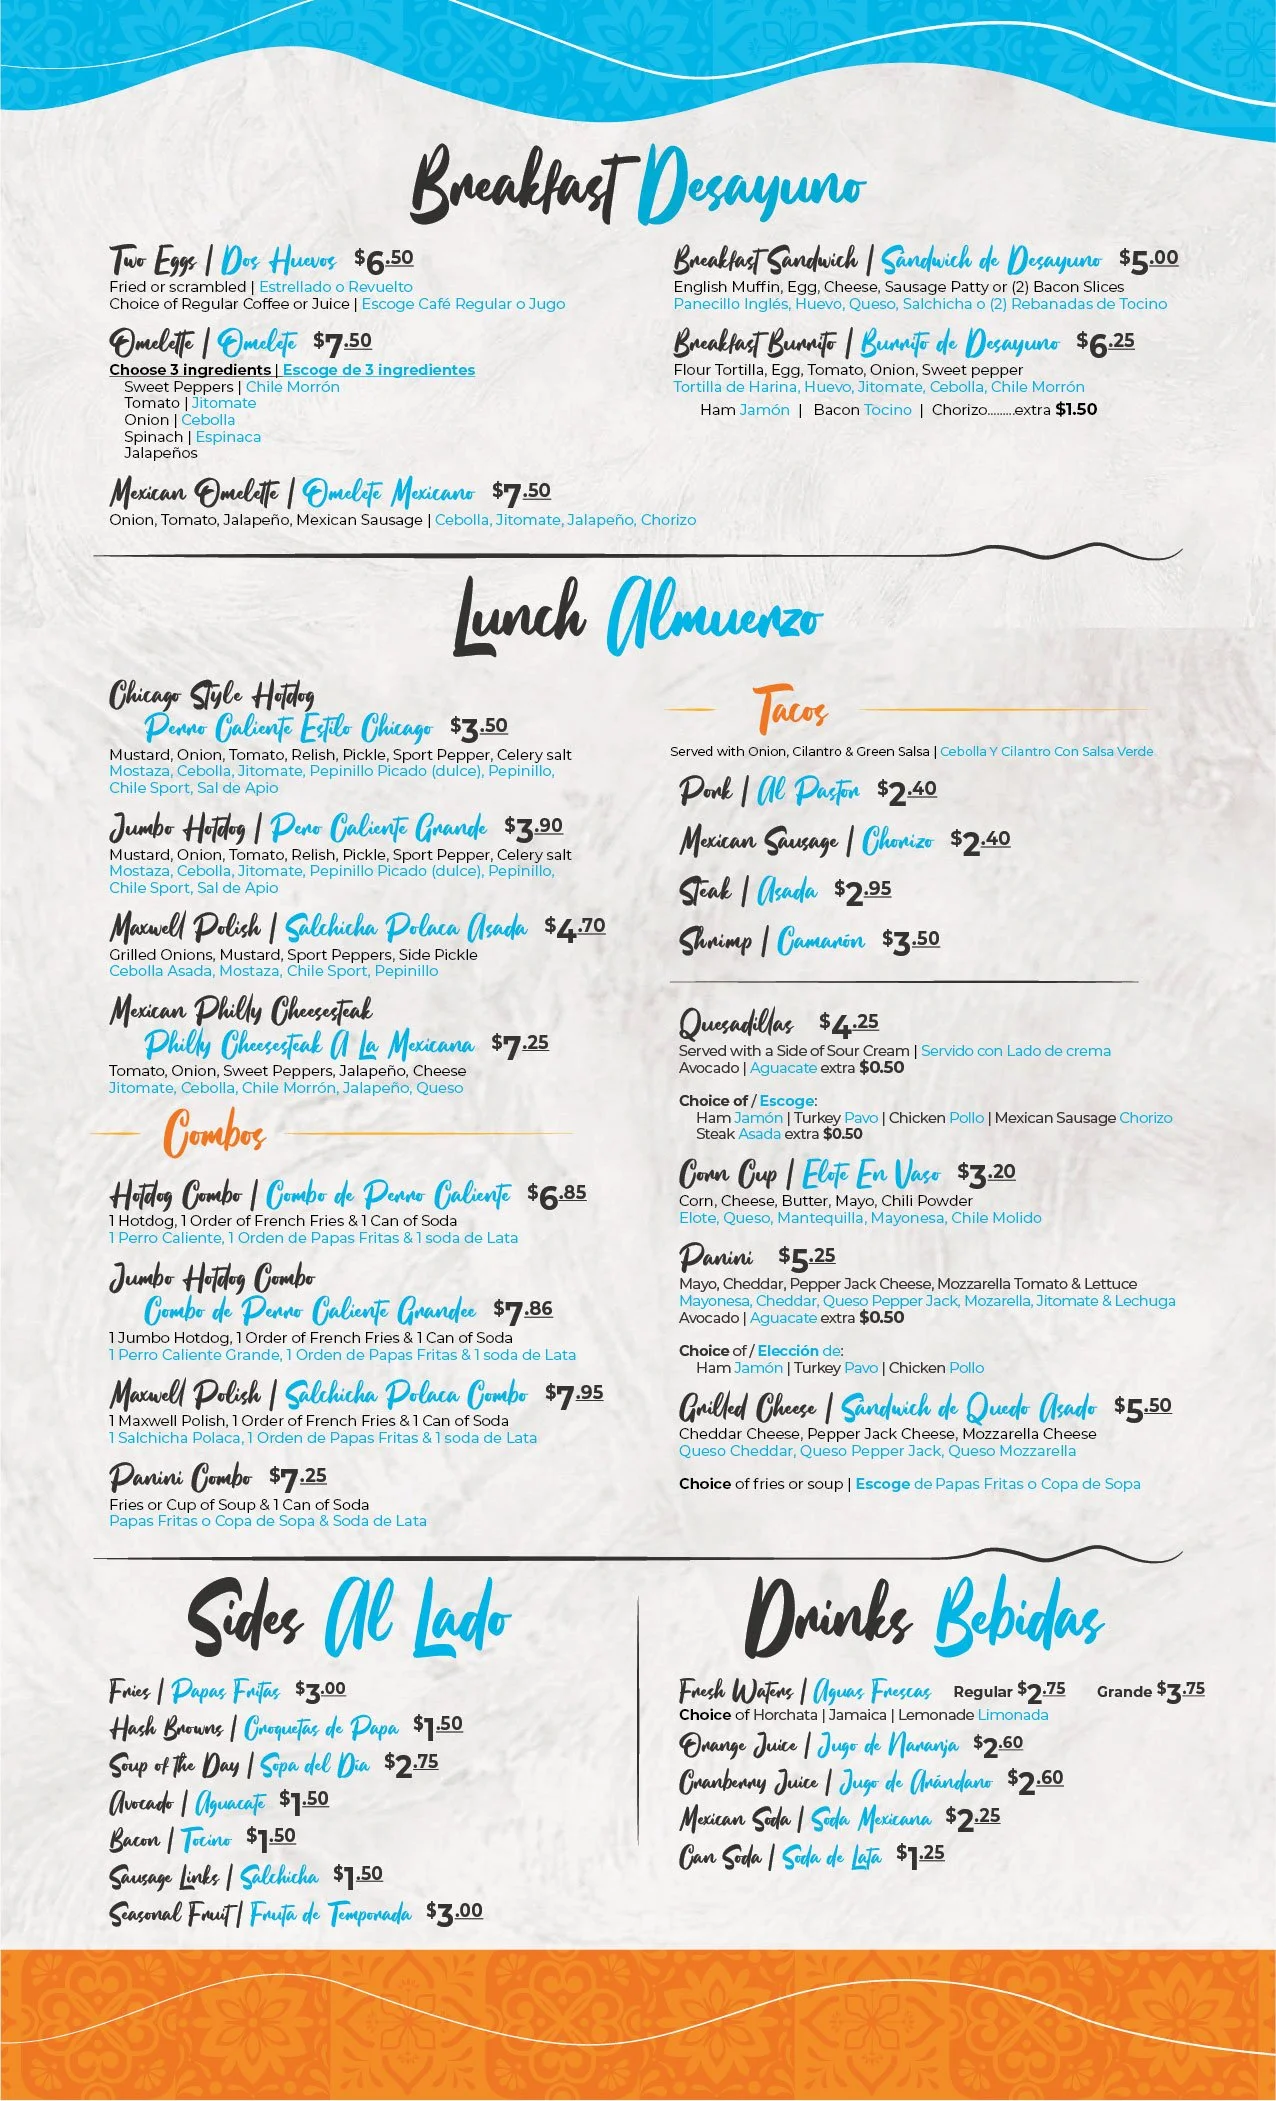 Breakfast Desayuno
Two Eggs | Dos Huevos $6.50
Fried or scrambled | Estrellado o Revuelto
Choice of Regular Coffee or Juice | Escoge Café Regular o Jugo
Omelette | Omelete $7.50
Choose 3 ingredients | Escoge de 3 ingredientes
Sweet Peppers | Chile Morrón
Tomato | Jitomate
Onion | Cebolla
Spinach | Espinaca
Jalapeños
Mexican Omelette | Omelete Mexicano $7.50
Onion, Tomato, Jalapeño, Mexican Sausage | Cebolla, Jitomate, Jalapeño, Chorizo
Breakfast Sandwich | Sándwich de Desayuno $5.00
English Muffin, Egg, Cheese, Sausage Patty or (2) Bacon Slices
Panecillo Inglés, Huevo, Queso, Salchicha o (2) Rebanadas de Tocino
Breakfast Burrito | Burrito de Desayuno $6.25
Flour Tortilla, Egg, Tomato, Onion, Sweet pepper
Tortilla de Harina, Huevo, Jitomate, Cebolla, Chile Morrón
Ham Jamón | Bacon Tocino | Chorizo.........extra $1.50
Lunch Almuerzo
Chicago Style Hotdog
Perro Caliente Estilo Chicago $3.50
Mustard, Onion, Tomato, Relish, Pickle, Sport Pepper, Celery salt
Mostaza, Cebolla, Jitomate, Pepinillo Picado (dulce), Pepinillo,
Chile Sport, Sal de Apio
Jumbo Hotdog | Pero Caliente Grande $3.90
Mustard, Onion, Tomato, Relish, Pickle, Sport Pepper, Celery salt
Mostaza, Cebolla, Jitomate, Pepinillo Picado (dulce), Pepinillo,
Chile Sport, Sal de Apio
Maxwell Polish | Salchicha Polaca Asada $4.70
Grilled Onions, Mustard, Sport Peppers, Side Pickle
Cebolla Asada, Mostaza, Chile Sport, Pepinillo
Mexican Philly Cheesesteak
Philly Cheesesteak A La Mexicana $7.25
Tomato, Onion, Sweet Peppers, Jalapeño, Cheese
Jitomate, Cebolla, Chile Morrón, Jalapeño, Queso
Combos
Hotdog Combo | Combo de Perro Caliente $6.85
1 Hotdog, 1 Order of French Fries & 1 Can of Soda
1 Perro Caliente, 1 Orden de Papas Fritas & 1 soda de Lata
Jumbo Hotdog Combo
Combo de Perro Caliente Grandee $7.86
1 Jumbo Hotdog, 1 Order of French Fries & 1 Can of Soda
1 Perro Caliente Grande, 1 Orden de Papas Fritas & 1 soda de Lata
Maxwell Polish | Salchicha Polaca Combo $7.95
1 Maxwell Polish, 1 Order of French Fries & 1 Can of Soda
1 Salchicha Polaca, 1 Orden de Papas Fritas & 1 soda de Lata
Panini Combo $7.25
Fries or Cup of Soup & 1 Can of Soda
Papas Fritas o Copa de Sopa & Soda de Lata
Tacos
Served with Onion, Cilantro & Green Salsa | Cebolla Y Cilantro Con Salsa Verde
Pork | Al Pastor $2.40
Mexican Sausage | Chorizo $2.40
Steak | Asada $2.95
Shrimp | Camarón $3.50
Quesadillas $4.25
Served with a Side of Sour Cream | Servido con Lado de crema
Avocado | Aguacate extra $0.50
Choice of / Escoge:
Ham Jamón | Turkey Pavo | Chicken Pollo | Mexican Sausage Chorizo
Steak Asada extra $0.50
Corn Cup | Elote En Vaso $3.20
Corn, Cheese, Butter, Mayo, Chili Powder
Elote, Queso, Mantequilla, Mayonesa, Chile Molido
Panini $5.25
Mayo, Cheddar, Pepper Jack Cheese, Mozzarella Tomato & Lettuce
Mayonesa, Cheddar, Queso Pepper Jack, Mozarella, Jitomate & Lechuga
Avocado | Aguacate extra $0.50
Choice of / Elección de:
Ham Jamón | Turkey Pavo | Chicken Pollo
Grilled Cheese | Sándwich de Quedo Asado $5.50
Cheddar Cheese, Pepper Jack Cheese, Mozzarella Cheese
Queso Cheddar, Queso Pepper Jack, Queso Mozzarella
Choice of fries or soup | Escoge de Papas Fritas o Copa de Sopa
Sides Al Lado
Fries | Papas Fritas $3.00
Hash Browns | Croquetas de Papa $1.50
Soup of the Day | Sopa del Día $2.75
Avocado | Aguacate $1.50
Bacon | Tocino $1.50
Sausage Links | Salchicha $1.50
Seasonal Fruit | Fruta de Temporada $3.00
Drinks Bebidas
Fresh Waters | Aguas Frescas Regular $2.75 Grande $3.75
Choice of Horchata | Jamaica | Lemonade Limonada
Orange Juice | Jugo de Naranja $2.60
Cranberry Juice | Jugo de Arándano $2.60
Mexican Soda | Soda Mexicana $2.25
Can Soda | Soda de Lata $1.25